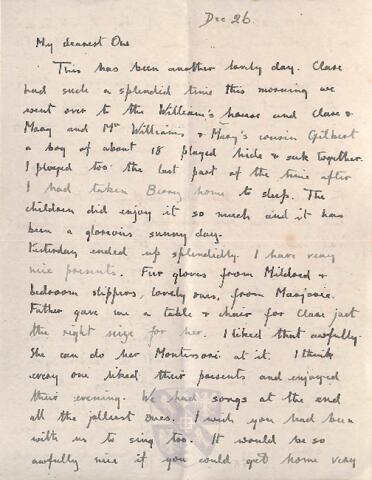 Dec 26.
My dearest One
This has been another lovely day. Clare
had such a splendid time this morning we
went over to the William's house and Clare &
Mary and Mr Williams, & Mary's cousin Gilbert
a boy of about 18 played hide & seek together.
I played too the last part of the time after
I had taken Benny home to sleep. The
children did enjoy it so much and it has
been a glorious sunny day.
Yesterday ended up splendidly. I have very
nice presents. Fur gloves from Mildred &
bedroom slippers, lovely ones, from Marjorie.
Father gave me a table & chair for Clare just
the right seize for her. I liked that awfully.
She can do her Montessori at it. I think
every one liked their presents and enjoyed
their evening. We had songs at the end
all the jolliest ones. I wish you had been
with us to sing too. It would be so
awfully nice if you could get home very